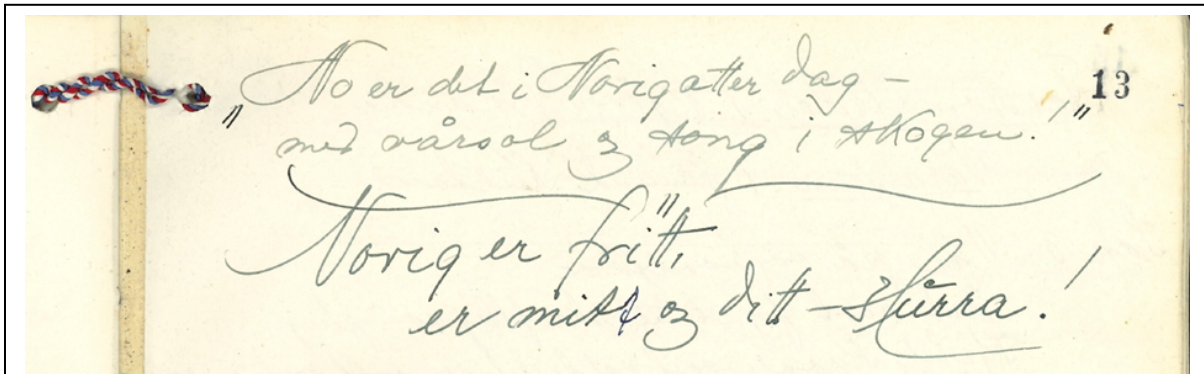 No er det i Norig atter dag – 13
„med vårsol og song i skogen!"
Norig er fritt,
er mitt og ditt – Hurra!